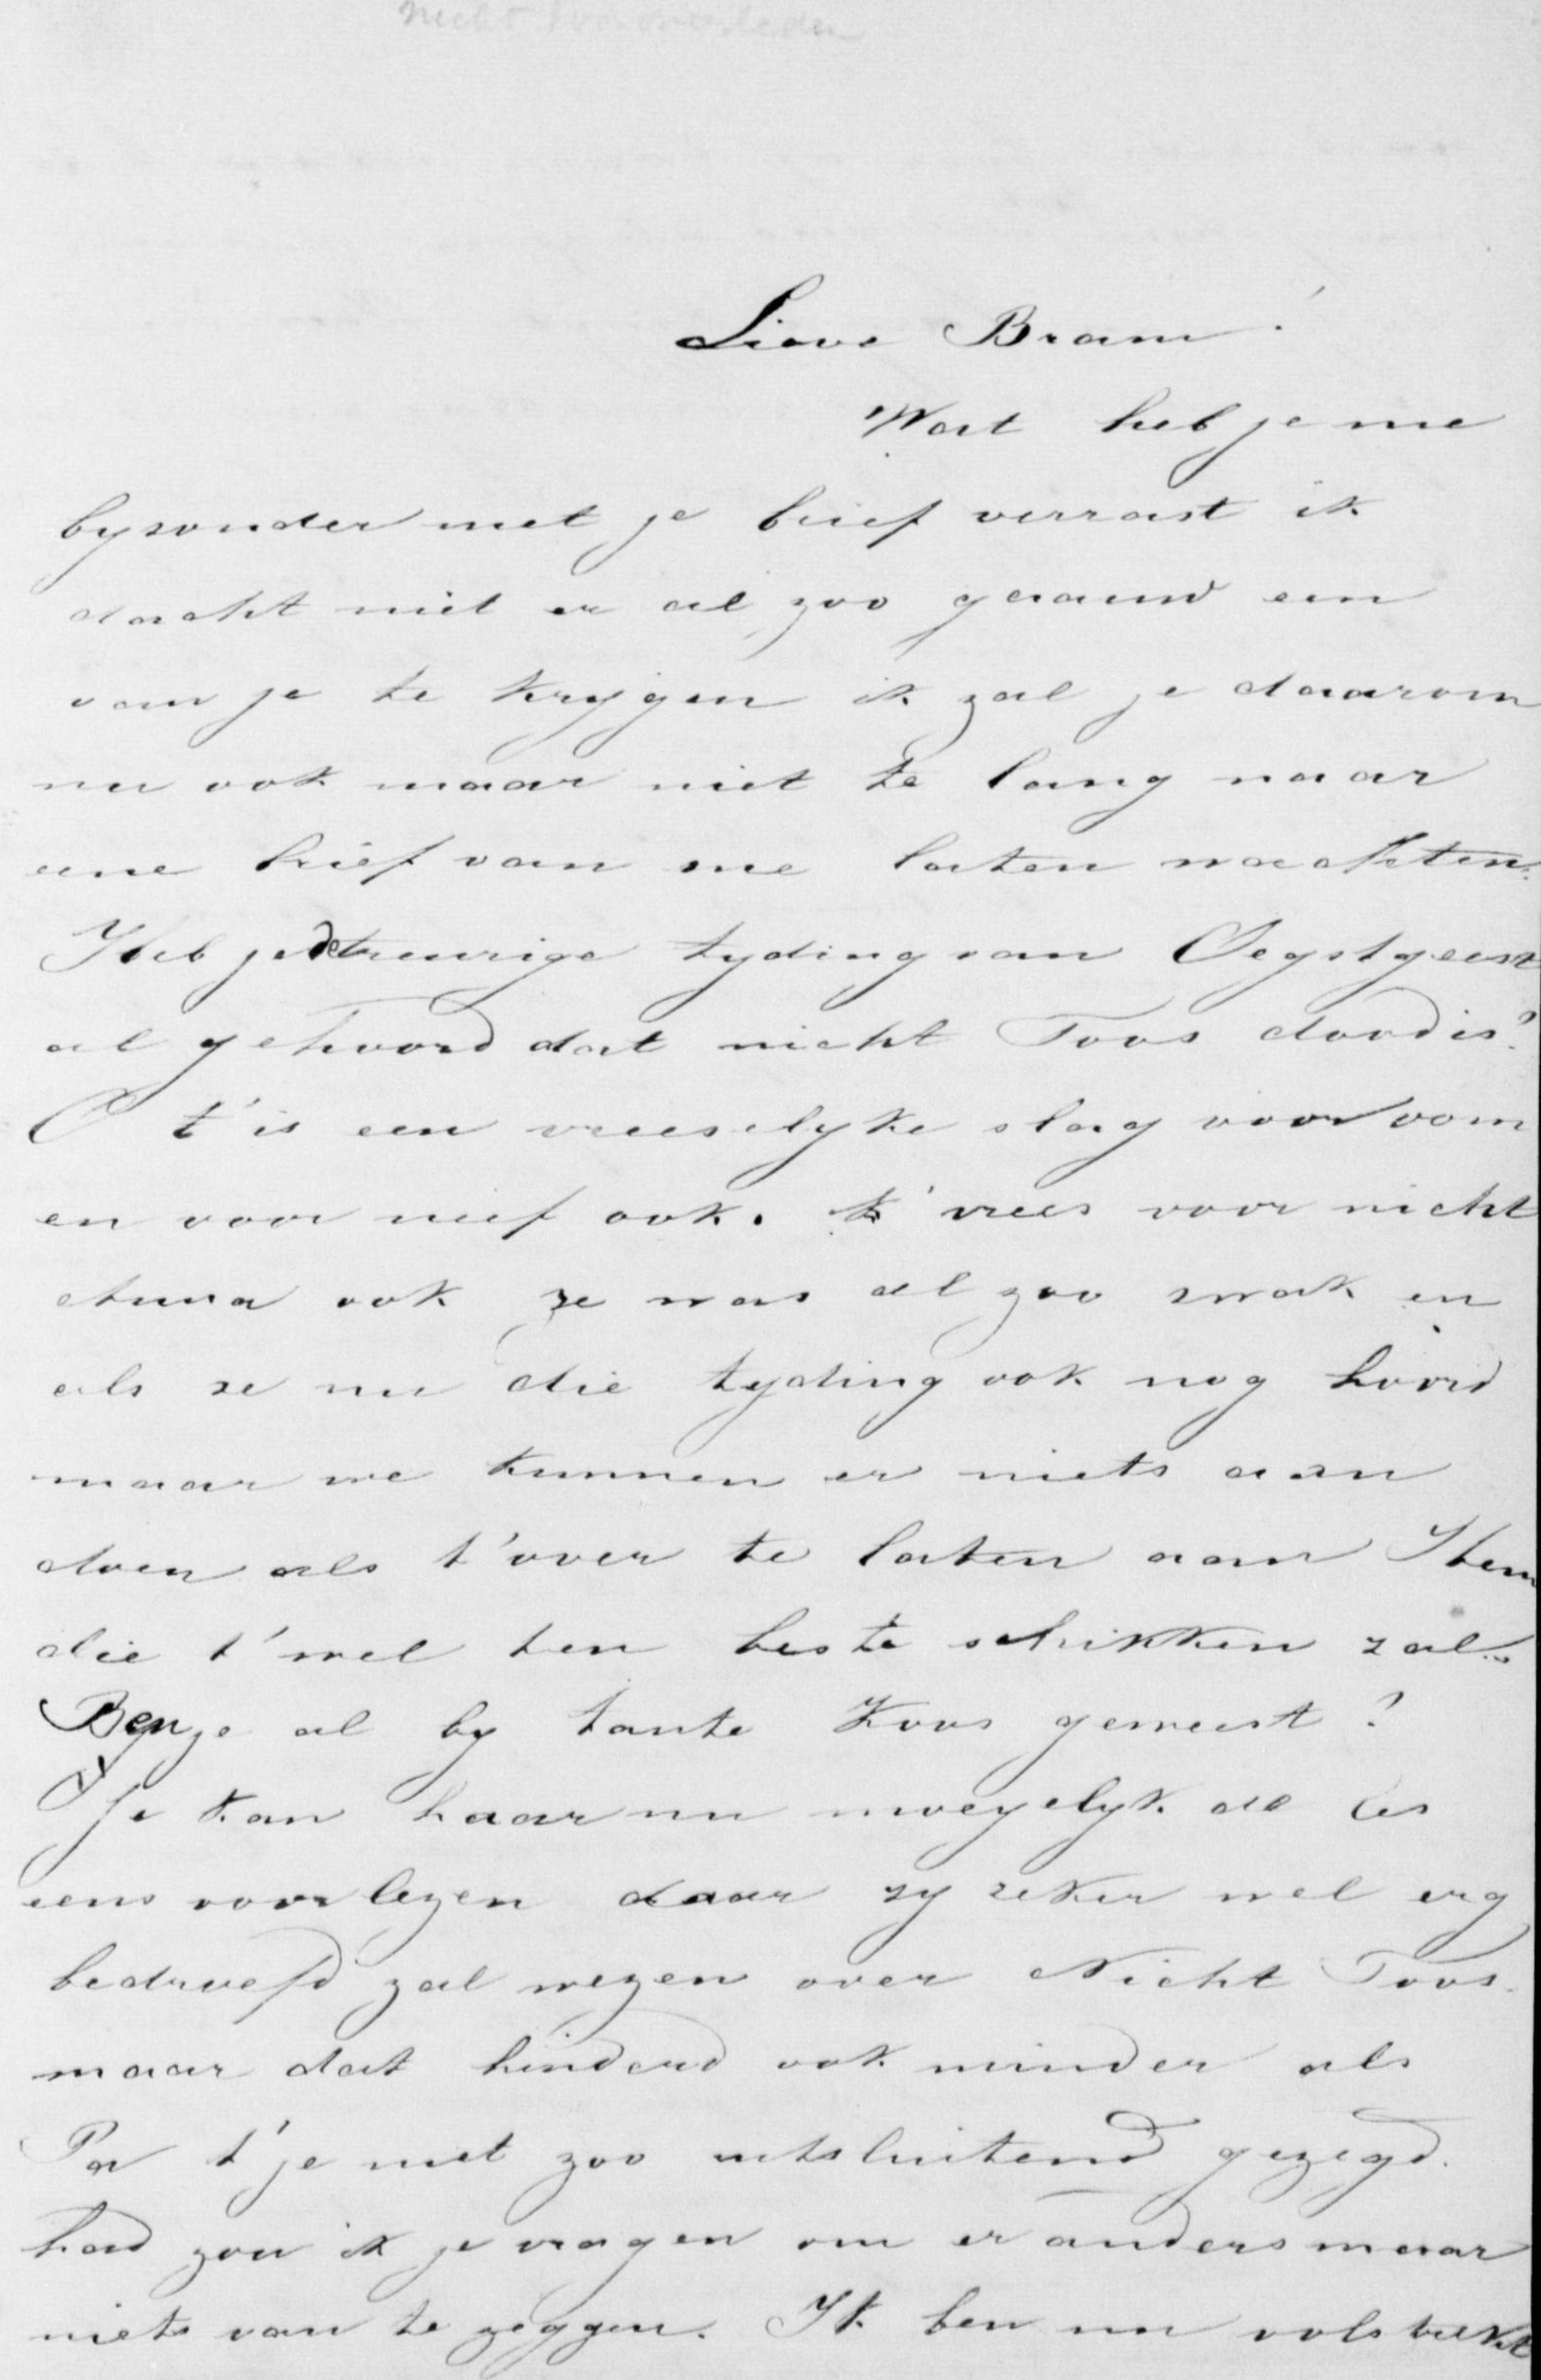 Lieve Bram!
Wat heb je me
byzonder met je brief verrast ik
dacht niet er al zoo gaauw een
van je te krygen ik zal je daarom
nu ook maar niet te lang naar
eene brief van me laten wachten.
Heb je de treurige tyding van Oegstgeest
al gehoord dat nicht Toos dood is?
O t'is een vreeselyke slag voor oom
en voor neef ook. k' vrees voor nicht
Anna ook ze was al zoo zwak en
als ze nu die tyding ook nog hoord
maar we kunnen er niets aan
doen als t'over te laten aan Hem
die t'wel ten beste schikken zal.
Ben je al by tante Koos geweest?
Je kan haar nu moeyelyk de les
eens voorlezen daar zy zeker wel erg
bedroefd zal wezen over Nicht Toos.
maar dat hinderd ook minder als
Pa t'je niet zoo uitsluitend gezegd.
had zou ik je vragen om er anders maar
niets van te zeggen. Ik ben nu volstrekt